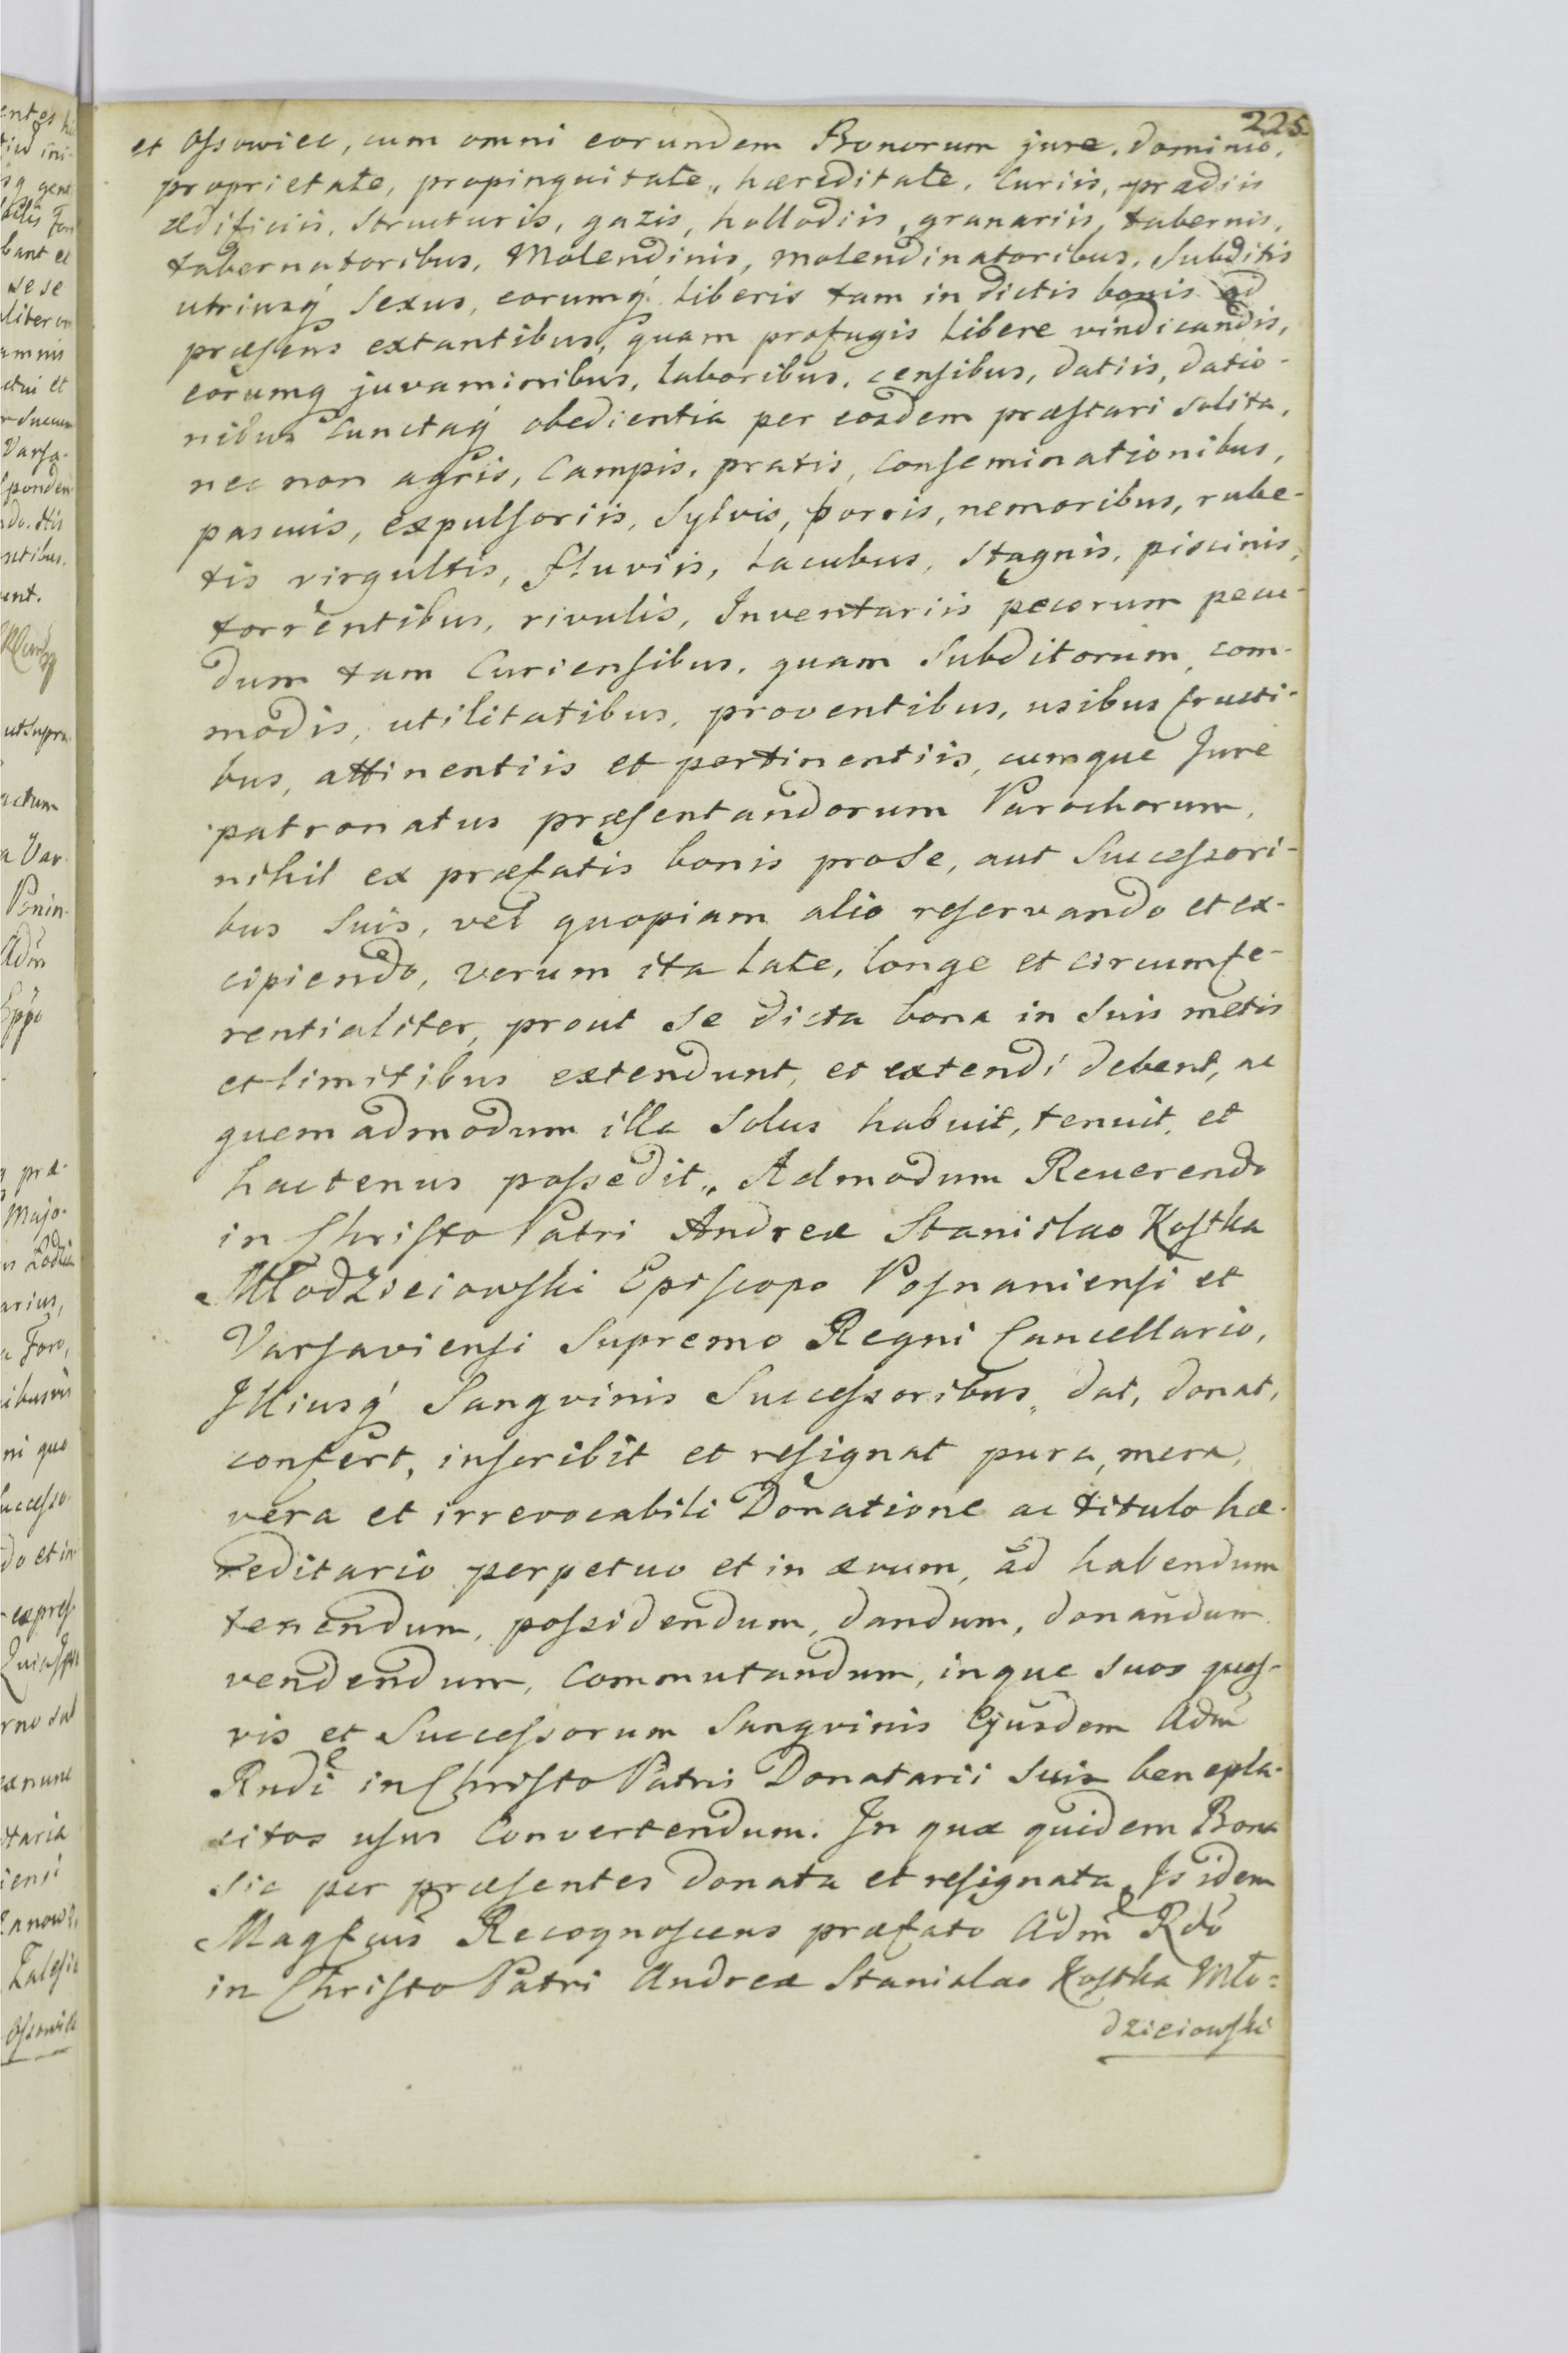 225
et Ossowiec, cum omni eorundem Bonorum jure, dominio,
proprietate, propinquitate, hæreditate, Curiis, prædiis
ædificiis, Structuris, gazis, hallodiis, granariis, tabernis,
tabernatoribus, Molendinis, molendinatoribus, Subditis
utriusq́ Sexus, eorumq́ Liberis tam in dictis bonis ad
præsens extantibus, quam profugis Libere vindicandis,
eorumq juvaminibus, Laboribus, censibus, datiis, datio-
nibus Cunctaq́ obedientia per eosdem præstari Solita,
nec non agris, Campis, pratis, Conseminationibus,
pascuis, expulsoriis, Sylvis, borris, nemoribus, rube-
tis virgultis, fluviis, Lacubus, Stagnis, piscinis,
torrentibus, rivulis, Inventariis pecorum pecu-
dum tam Curiensibus, quam Subditorum, com-
modis, utilitatibus, proventibus, usibus fructi-
bus, attinentiis et pertinentiis, cumque Jure
patronatus præsentandorum Parochorum,
nihil ex præfatis bonis pro Se, aut Successori-
bus Suis, vel quopiam alio reservando et ex-
cipiendo, verum ita Late, longe et circumfe-
rentialiter, prout Se dicta bona in Suis metis
et limitibus extendunt, et extendi debent, ac
quem admodum illa Solus habuit, tenuit, et
hactenus possedit, Admodum Reuerendo
in Christo Patri Andreæ Stanislao Kostka
Młodzieiowski Episcopo Posnaniensi et
Varsaviensi Supremo Regni Cancellario,
Illiusq́ Sangvinis Successoribus, dat, donat,
confert, inscribit et resignat pura, mera,
vera et irrevocabili Donatione ac titulo hæ-
reditario perpetuo et in ævum, ad habendum
tenendum, possidendum, dandum, donandum
vendendum, Commutandum, inque Suos quos-
vis et Successorum Sangvinis Ejusdem Adm
Rndi in Christo Patris Donatarii Suis benepla-
citos usus Convertendum. In quæ quidem Bona
Sic per præsentes donata et resignata, Is idem
Magfcus Recognoscens præfato Adm Rdo
in Christo Patri Andreæ Stanislao Kostka Mło=
dzieiowski